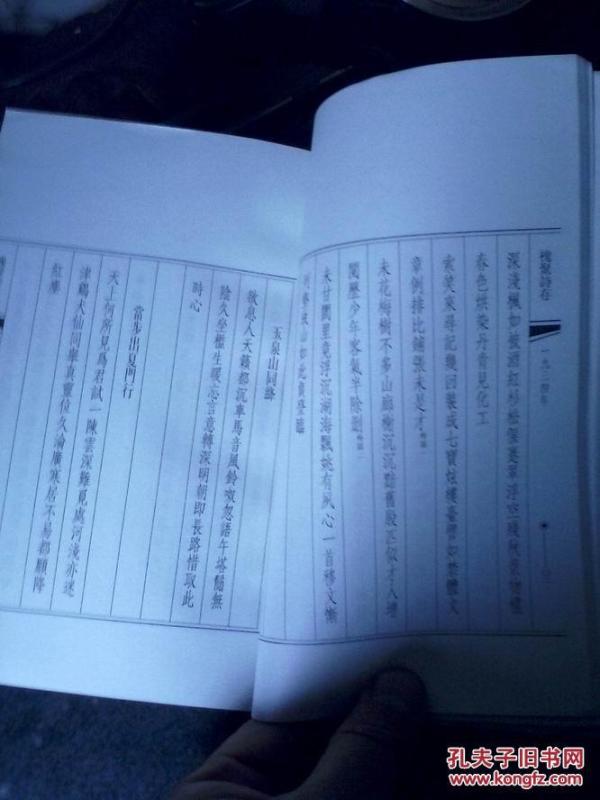 槐聚詩存
一九
深淺楓如被酒紅杉松
春色烘染丹青見化工
索笑來尋記幾回裝成七寶炫樓臺譬如禁體文
章例排比鋪張未是才
未花梅樹不多山廊榭沉沉黯舊殷正似才人增
閱歷少年客氣半除刪
未甘閭里竟浮沉湖海飄姚有夙心一首移文慚
山如此負登臨
玉泉山同絳
欲息人天籟都沉車馬音風鈴呶忽語午塔鬅無
陰久坐檻生暖忘言意轉深明朝即長路惜取此
時心
當步出夏門行
天上何所見爲君試一陳雲深難覓處河淺亦迷
津鷄犬仙同舉真靈位久淪廣寒居不易都願降
紅塵
孔夫子旧书网
www.kongfz.com